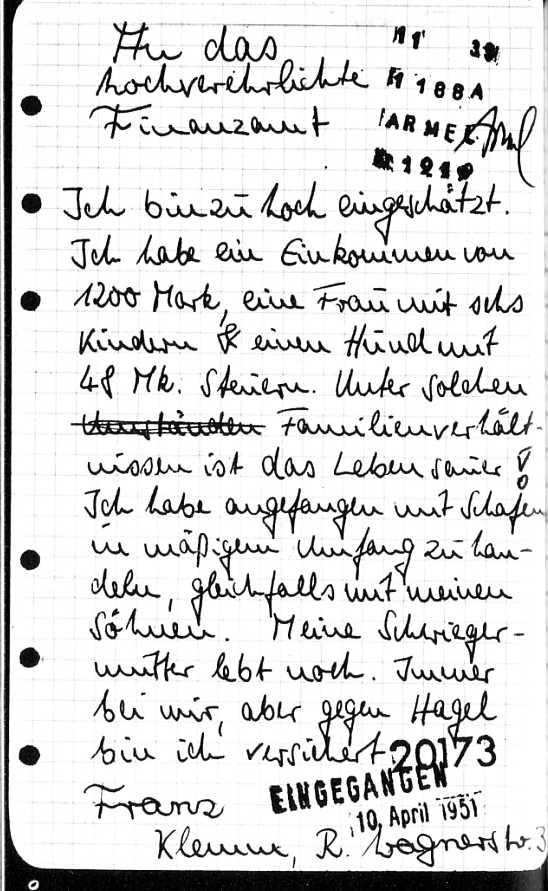 An das
hochverehrlichte
Finanzamt
1188A
ARMEE
1219
Ich bin zu hoch eingeschätzt.
Ich habe ein Einkommen von
1200 Mark, eine Frau mit sechs
Kindern & einen Hund mit
48 Mk. Steuern. Unter solchen
Umständen Familienverhält-
nissen ist das Leben sauer!
Ich habe angefangen mit Schafen
in mäßigem Umfang zu han-
deln, gleichfalls mit meinen
Söhnen. Meine Schwieger-
mutter lebt noch. Immer
bei mir, aber gegen Hagel
bin ich versichert.
20173
EINGEGANGEN
10. April 1951
Franz
Klemm, R. Wagnerstr. 3